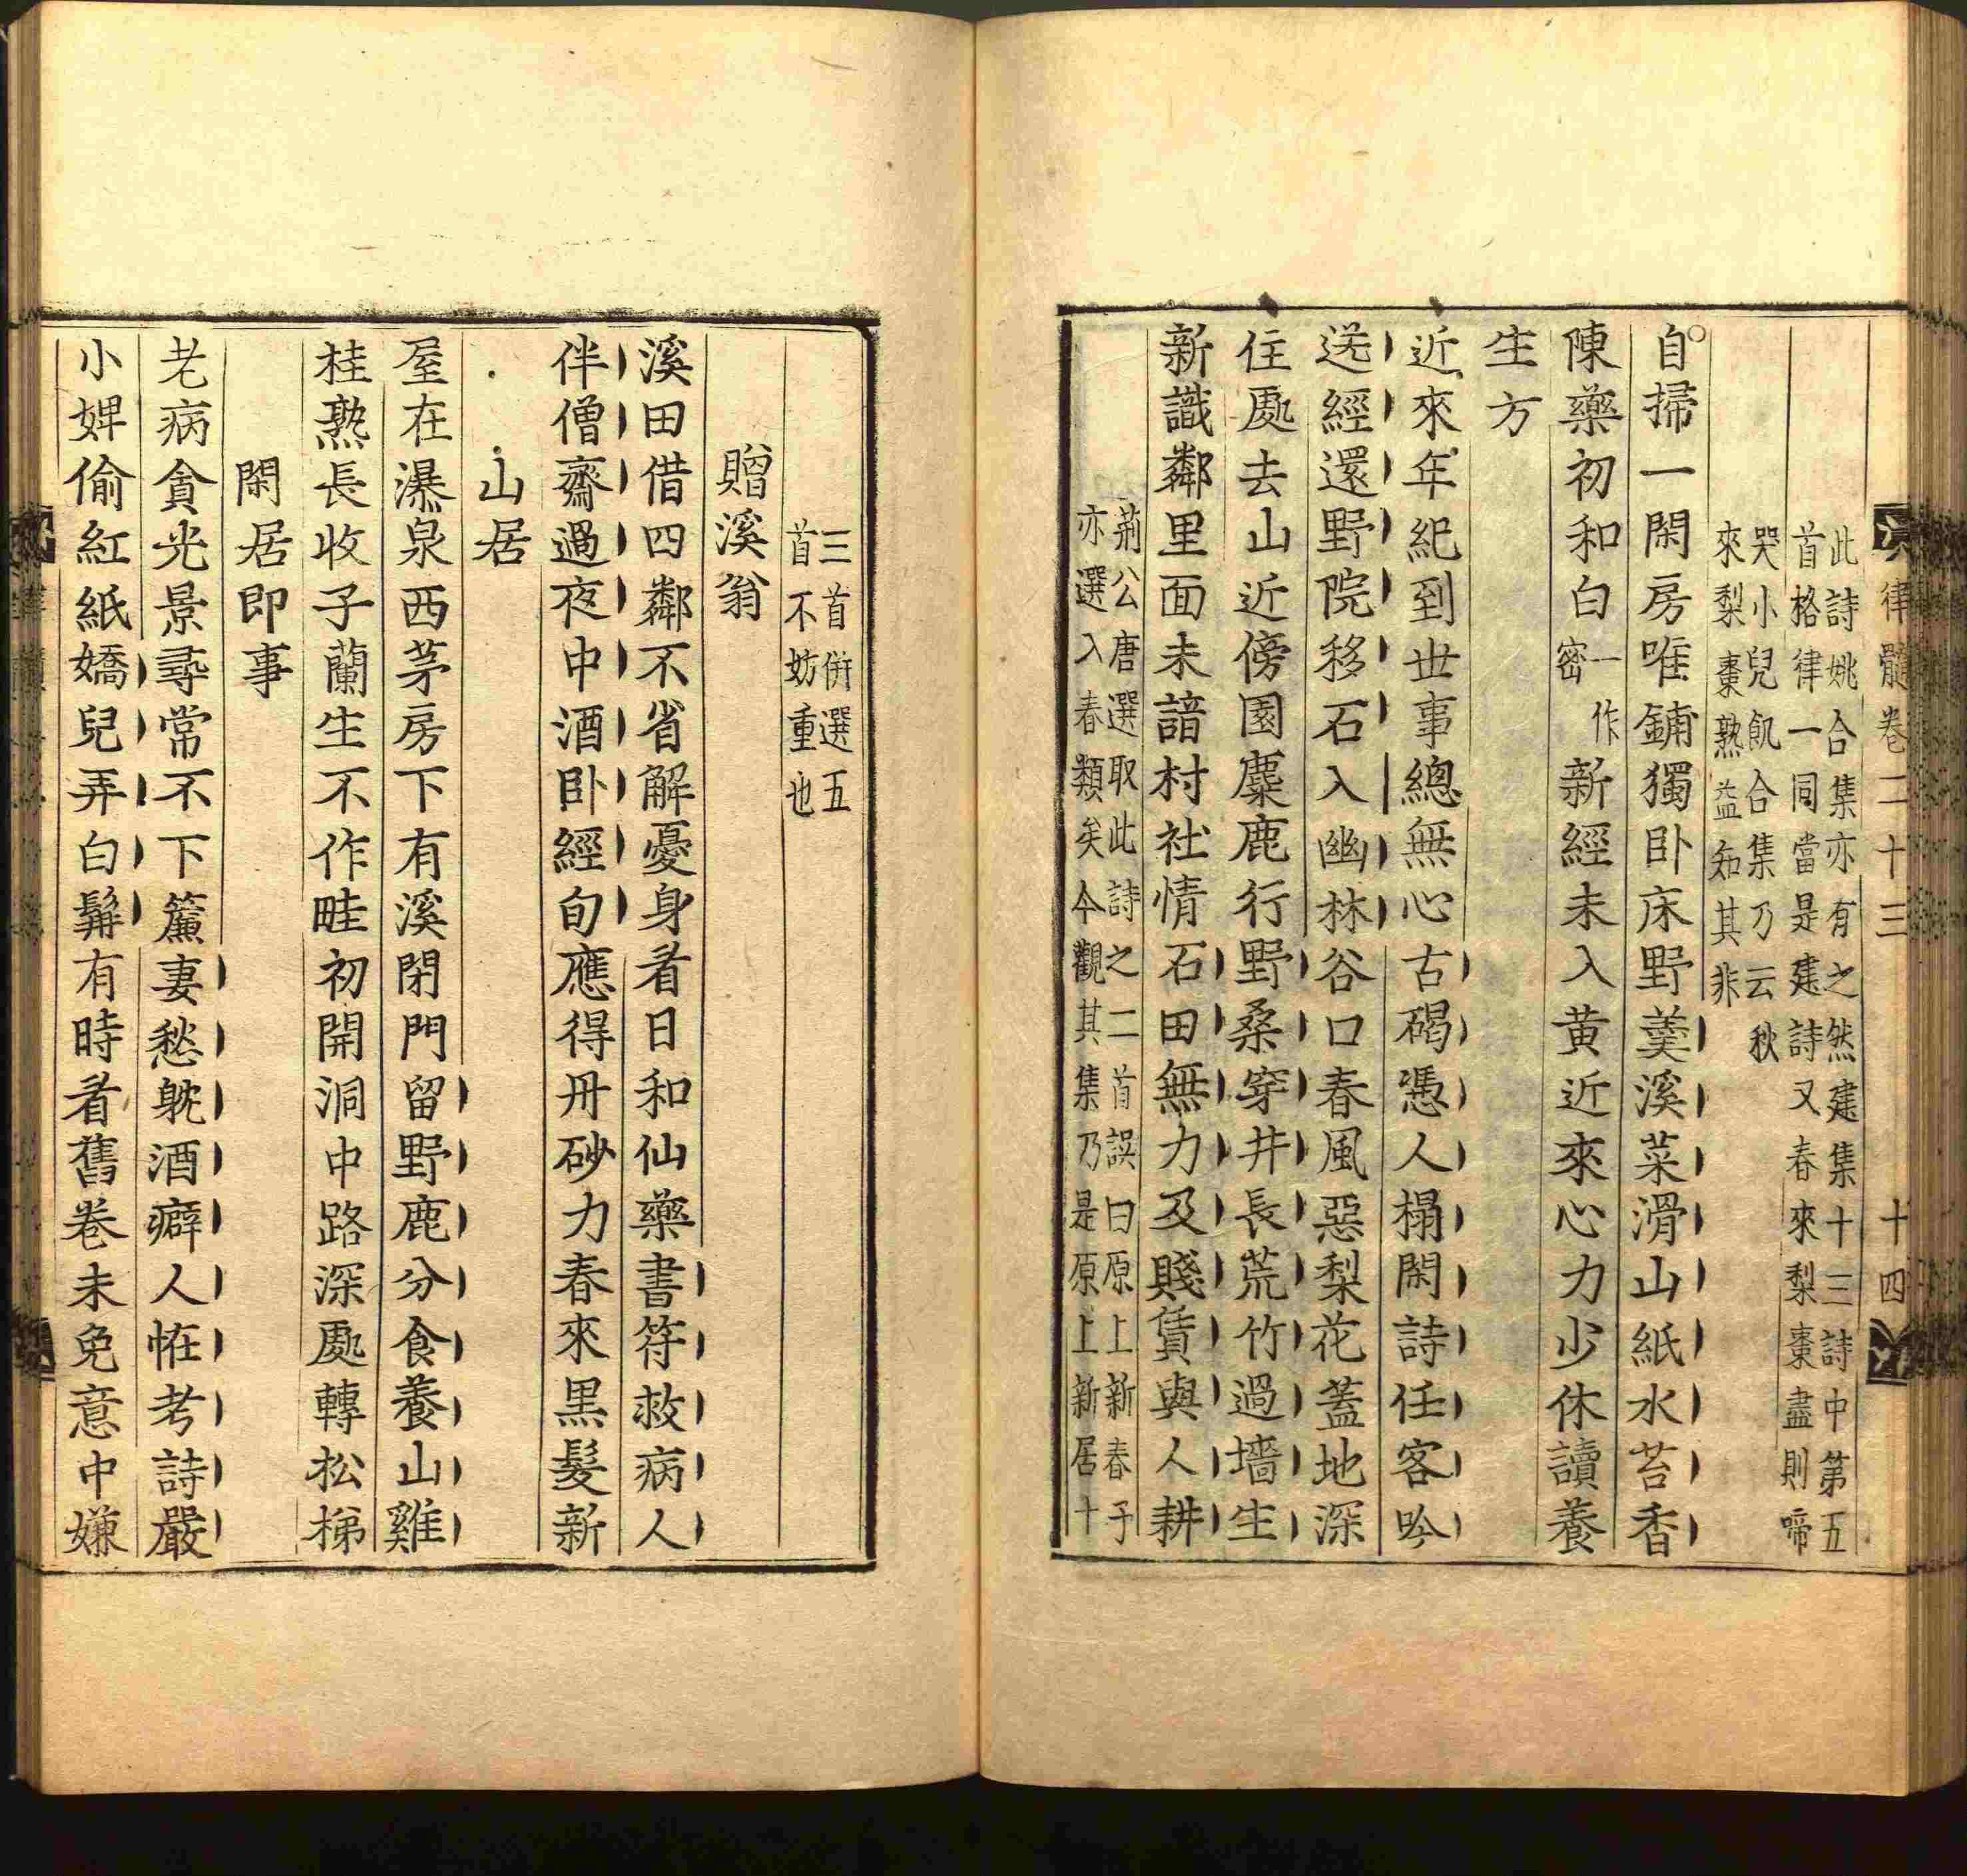 律髓卷二十三 十四
此詩姚合集亦有之然建集十三詩中第五
首格律一同當是建詩又春來梨棗盡則啼
哭小兒飢合集乃云秋
來梨棗熟益知其非
自掃一閑房唯鋪獨卧床野羹溪菜滑山紙水苔香
陳藥初和白一作密新經未入黄近來心力少休讀養
生方
近來年紀到世事總無心古碣憑人榻閑詩任客吟
送經還野院移石入幽林谷口春風惡梨花蓋地深
住處去山近傍園麋鹿行野桑穿井長荒竹過墻生
新識鄰里面未諳村社情石田無力及賤賃與人耕
荊公唐選取此詩之二首誤曰原上新春予
亦選入春類矣今觀其集乃是原上新居十
三首併選五
首不妨重也
贈溪翁
溪田借四鄰不省解憂身看日和仙藥書符救病人
伴僧齋過夜中酒卧經旬應得丹砂力春來黑髮新
山居
屋在瀑泉西茅房下有溪閉門留野鹿分食養山雞
桂熟長收子蘭生不作畦初開洞中路深處轉松梯
閑居即事
老病貪光景尋常不下簾妻愁躭酒癖人恠考詩嚴
小婢偷紅紙嬌兒弄白髯有時看舊卷未免意中嫌